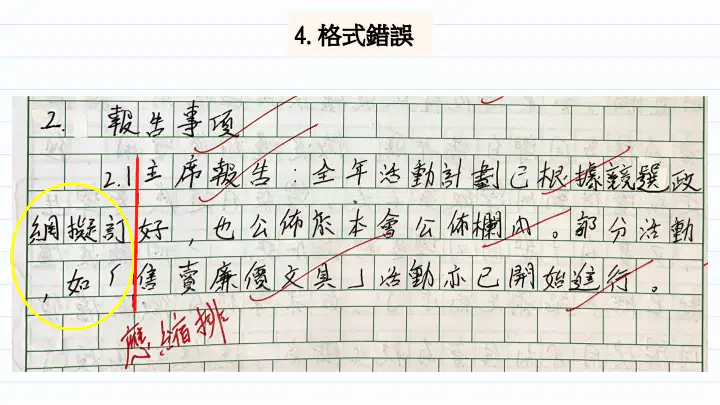 4.格式錯誤
2. 報告事項
2.1 主席報告：全年活動計劃已根據競選政
網擬訂好，也公佈於本會公佈欄內。部分活動
，如「售賣廉價文具」活動亦已開始進行。
應縮排